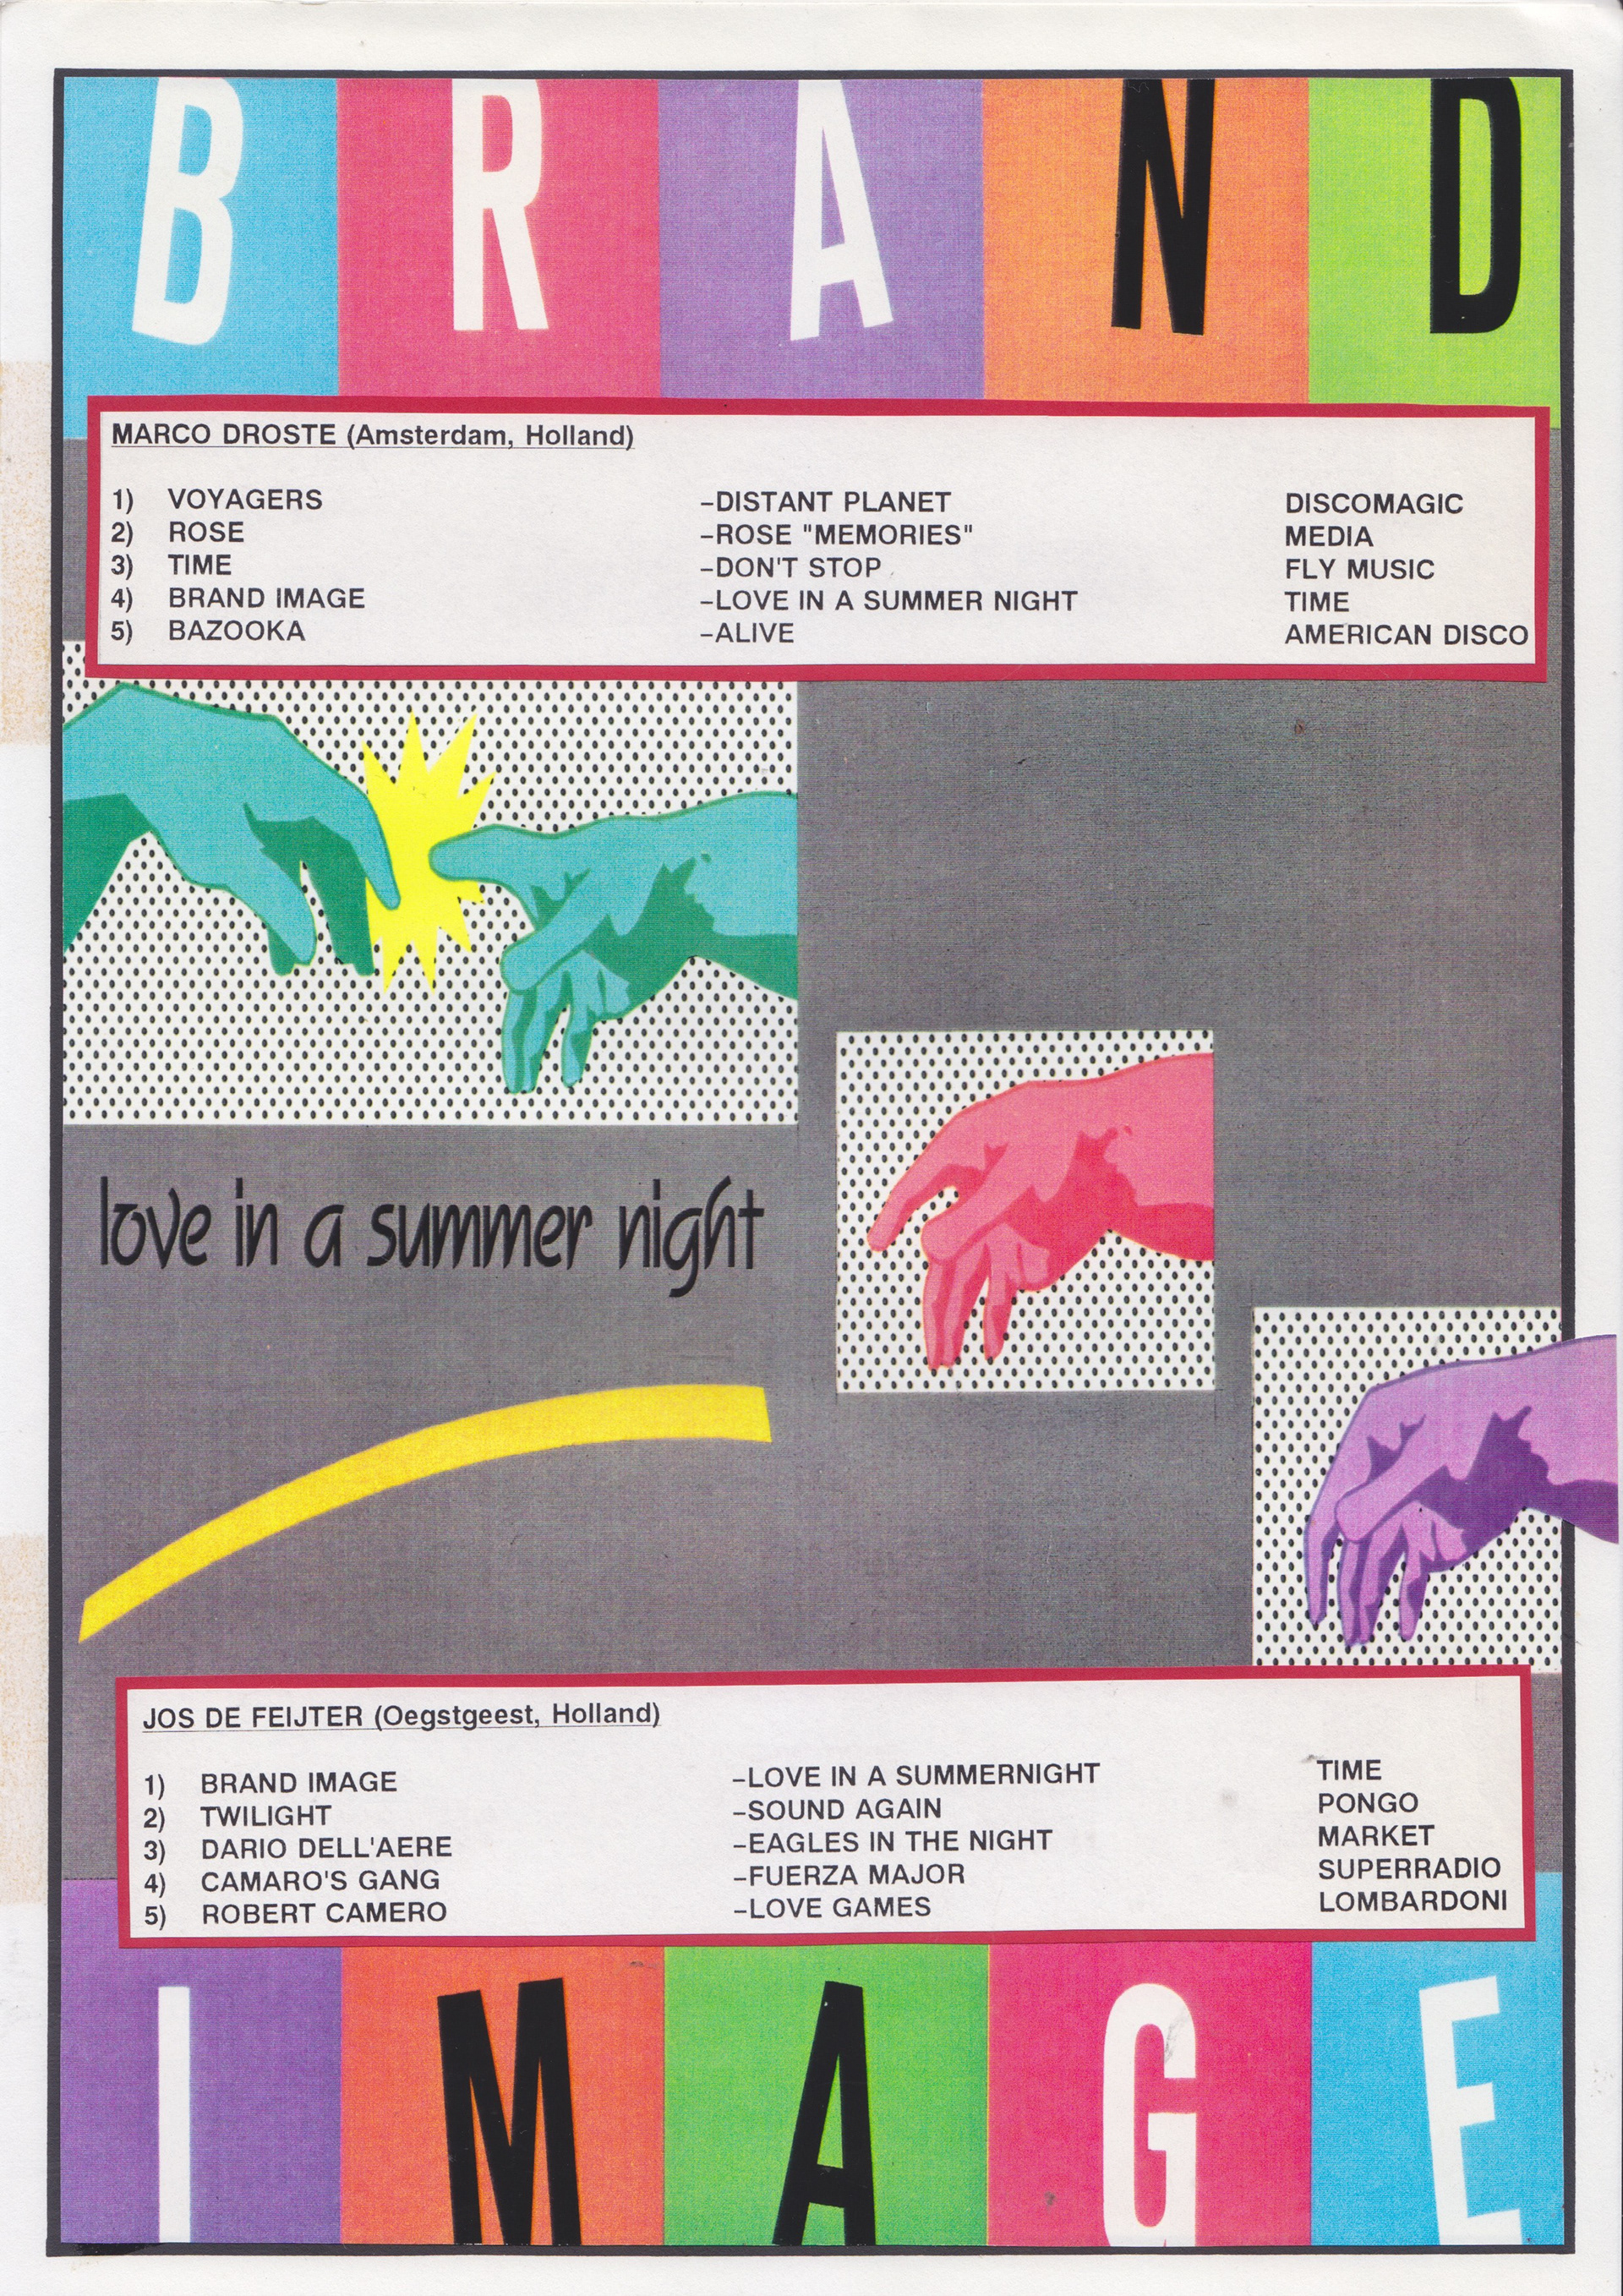 BRAND
MARCO DROSTE (Amsterdam, Holland)
1) VOYAGERS -DISTANT PLANET DISCOMAGIC
2) ROSE -ROSE "MEMORIES" MEDIA
3) TIME -DON'T STOP FLY MUSIC
4) BRAND IMAGE -LOVE IN A SUMMER NIGHT TIME
5) BAZOOKA -ALIVE AMERICAN DISCO
love in a summer night
JOS DE FEIJTER (Oegstgeest, Holland)
1) BRAND IMAGE -LOVE IN A SUMMERNIGHT TIME
2) TWILIGHT -SOUND AGAIN PONGO
3) DARIO DELL'AERE -EAGLES IN THE NIGHT MARKET
4) CAMARO'S GANG -FUERZA MAJOR SUPERRADIO
5) ROBERT CAMERO -LOVE GAMES LOMBARDONI
IMAGE